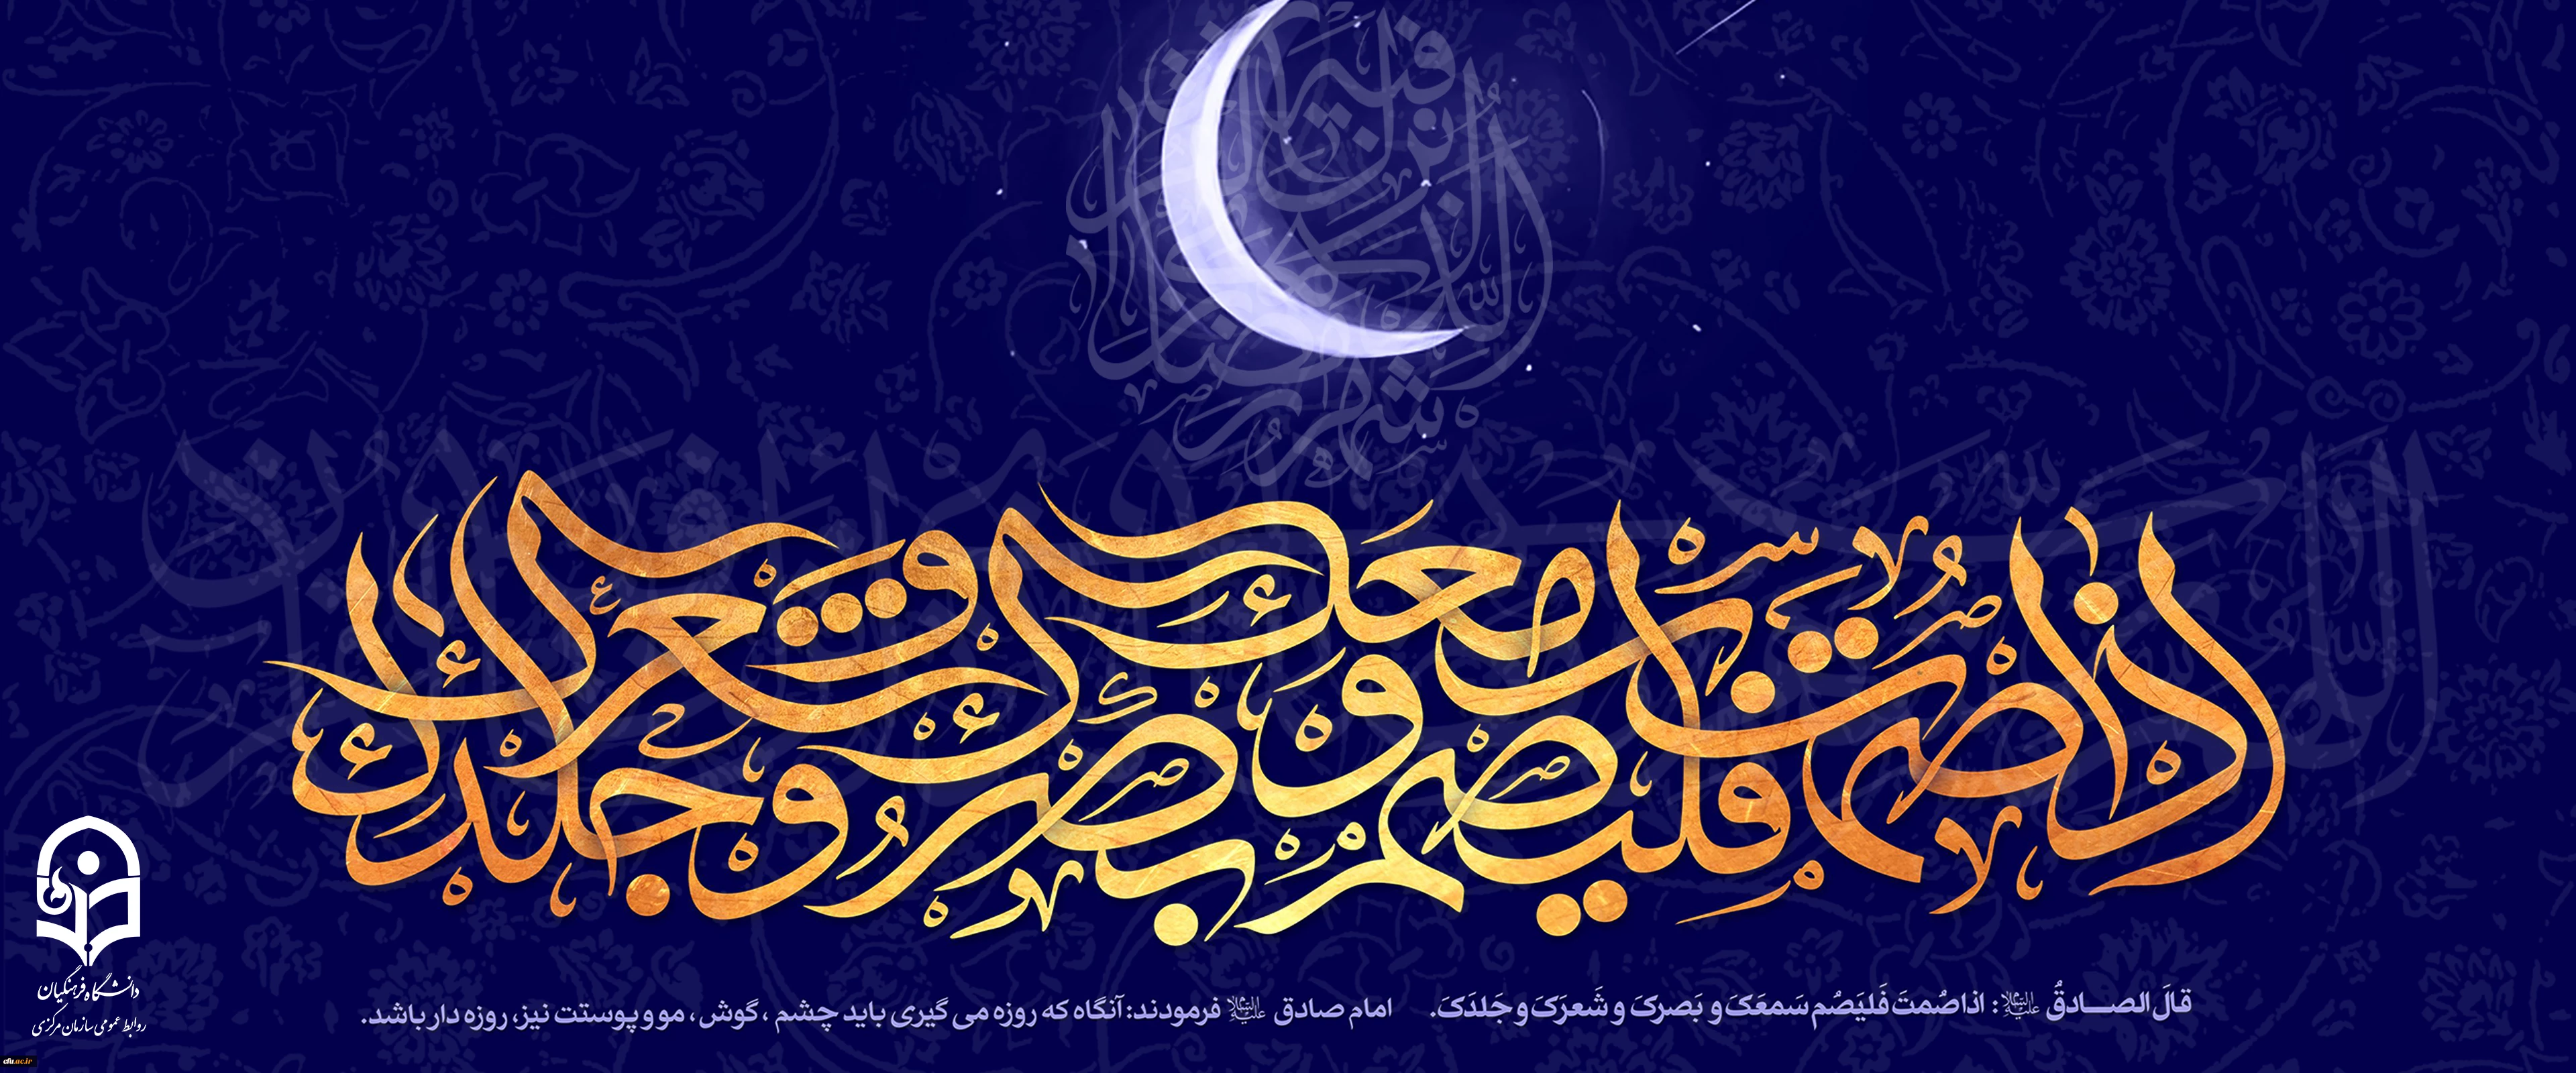 اذا صمت فلیصم سمعک و بصرک و شعرک و جلدک
قالَ الصـــادقُ علیه‌السلام: اذا صُمتَ فَلیَصُم سَمعَکَ و بَصرکَ و شَعرَکَ و جَلدَکَ.
امام صادق علیه‌السلام فرمودند: آنگاه که روزه می گیری باید چشم ، گوش ، مو و پوستت نیز، روزه دار باشد.
دانشگاه فرهنگیان
روابط عمومی سازمان مرکزی
cfu.ac.ir